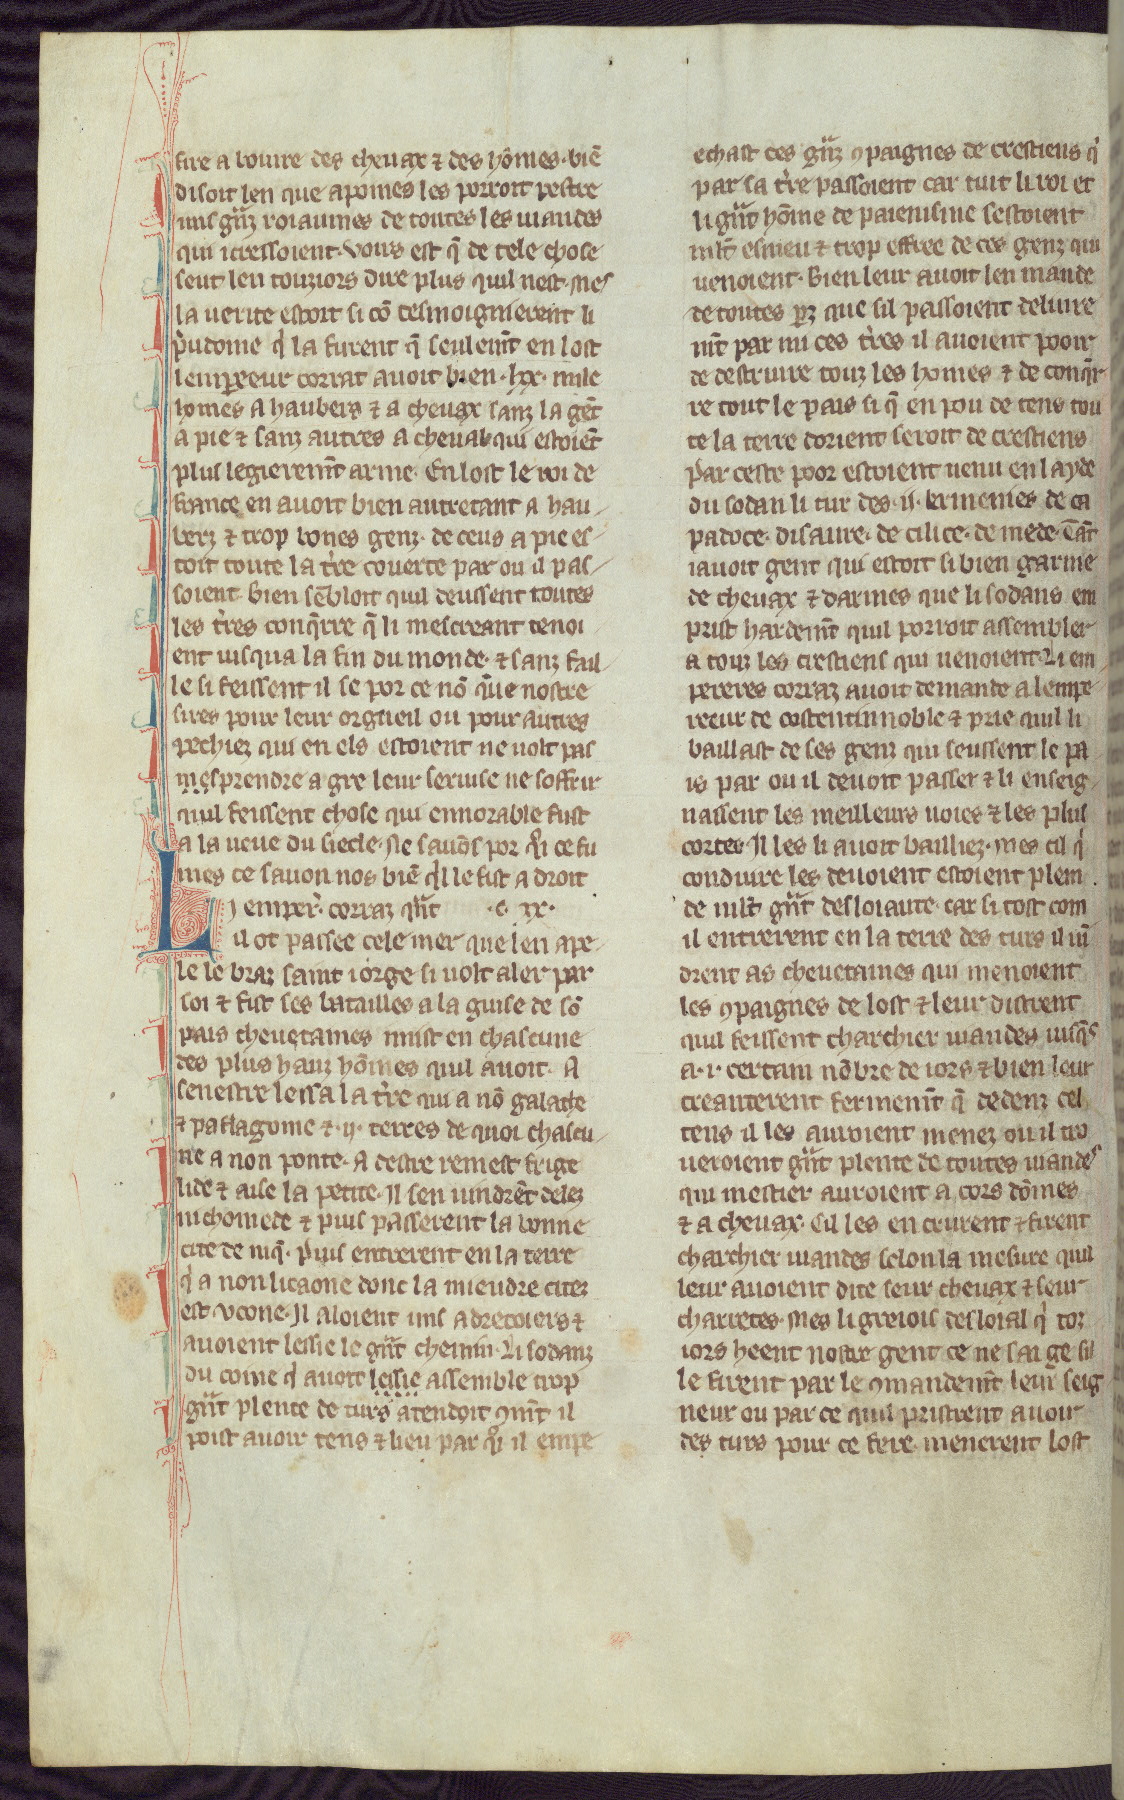 fire a boivre des chevax ⁊ des hõmes. biẽ
disoit len que a poines les porroit pestre
uns gñz roiaumes de toutes les viandes
qui i cressoient. Voirs est q̃ de tele chose
seut len touziors dire plus quil nest. Mes
la verite estoit si cõ tesmoignierent li
p̃udome q̃ la furent q̃ seulem̃t en lost
lempereeur corrat avoit bien .lxx. mile
homes a haubers ⁊ a chevax sanz la gẽt
a pie ⁊ sanz autres a cheval qui estoiẽt
plus legierem̃t arme. En lost le roi de
france en avoit bien autretant a hau
berz ⁊ trop bones genz. de ceus a pie es
toit toute la t̃re couerte par ou il pas
soient. bien sẽbloit quil deussent toutes
les t̃res conq̃rre q̃ li mescreant tenoi
ent iusqua la fin du monde. ⁊ sanz fail
le si feissent il se por ce nõ que nostre
sires pour leur orgueil ou pour autres
pechiez qui en els estoient ne volt pas
mesprendre a gre leur servise ne soffrir
quil feissent chose qui ennorable fust
a la veue du siecle. Ne savõs por q̃i ce fu
mes ce savon nos biẽ q̃l le fist a droit
Li emper̃. corraz q̃nt .c. xx.
il ot passee cele mer que len ape
le le braz saint iorge si volt aler par
soi ⁊ fist ses batailles a la guise de sõ
pais chevetaines mist en chascune
des plus hauz hõmes quil avoit. A
senestre lessa la t̃re qui a nõ galathe
⁊ paflagonie ⁊ .ij. terres de quoi chascu
ne a non ponte. A destre remest frige
lide ⁊ aise la petite. Il sen vindrẽt delez
nichomede ⁊ puis passerent la bonne
cite de niq̃. Puis entrerent en la terre
q̃ a non licaone donc la mieudre citez
est ycone. Il aloient uns adretoiers ⁊
avoient lessie le gñt chemin. Li sodanz
du coine q̃ avoit lessie assemble trop
gñt plente de turs atendoit 9m̃t il
poist avoir tens ⁊ lieu par q̃i il empe
echast ces gñz 9paignes de crestiens q̃
par sa t̃re passoient car tuit li roi et
li gñt hõme de paienisme sestoient
ml̃t esmeu ⁊ trop effree de ces genz qui
venoient. Bien leur avoit len mande
de toutes parz que sil passoient delivre
m̃t par mi ces t̃res il avoient pooir
de destruire touz les homes ⁊ de conq̃r
re tout le pais si q̃ en pou de tens tou
te la terre dorient seroit de crestiens
Par ceste poor estoient venu en layde
du sodan li tur des .ii. Ermenies de ca
padoce. disaure. de cilice. de mede. Tãt
i avoit gent qui estoit si bien garnie
de chevax ⁊ darmes que li sodans em
prist hardem̃t quil porroit assembler
a touz les crestiens qui venoient. Li em
pereres corraz avoit demande a lempe
reeur de costentinnoble ⁊ prie quil li
baillast de ses genz qui seussent le pa
is par ou il devoit passer ⁊ li enseig
nassent les meilleurs voies ⁊ les plus
cortes. Il les li avoit bailliez. Mes cil q̃
conduire les devoient estoient plein
de ml̃t gñt desloiaute. car si tost com
il entrerent en la terre des turs il vĩ
drent as chevetaines qui menoient
les 9paignes de lost ⁊ leur distrent
quil feissent charchier viandes iusq̃s
a .i. certain nõbre de iors ⁊ bien leur
creanterent fermem̃t q̃ dedenz cel
tens il les auroient menez ou il tro
veroient gñt plente de toutes viandes
qui mestier auroient a cors dõmes
⁊ a chevax. Cil les en crurent ⁊ firent
charchier viandes selon la mesure quil
leur avoient dite seur chevax ⁊ seur
charretes. Mes li greiois desloial q̃ toz
iors heent nostre gent ce ne sai ge sil
le firent par le 9mandem̃t leur seig
neur ou par ce quil pristrent avoir
des turs pour ce fere. menerent lost